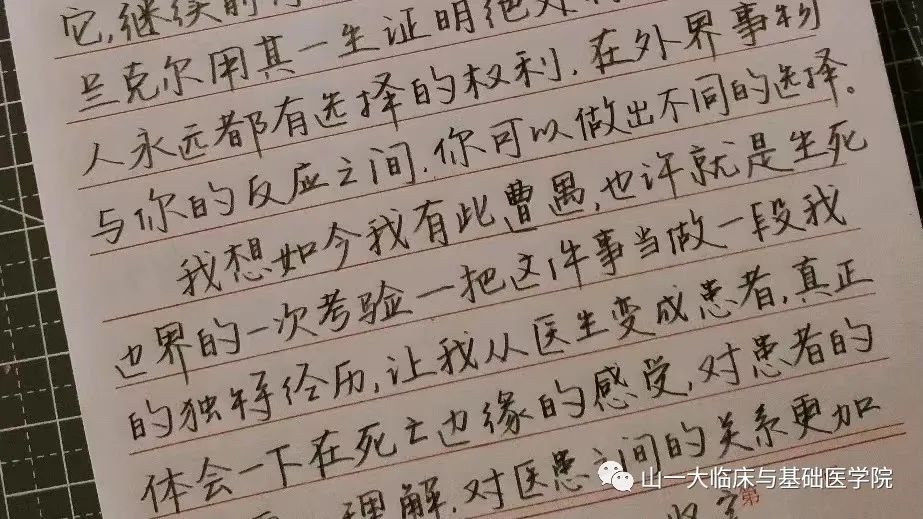 它,继续前
兰克尔用其一生证明绝处
人永远都有选择的权利,在外界事物
与你的反应之间,你可以做出不同的选择。
我想如今我有此曹禺,也许就是生死
边界的一次考验—把这件事当做一段我
的独特经历,让我从医生变成患者,真正
体会一下在死亡边缘的感受,对患者的
理解,对医患之间的关系更加
山一大临床与基础医学院
第